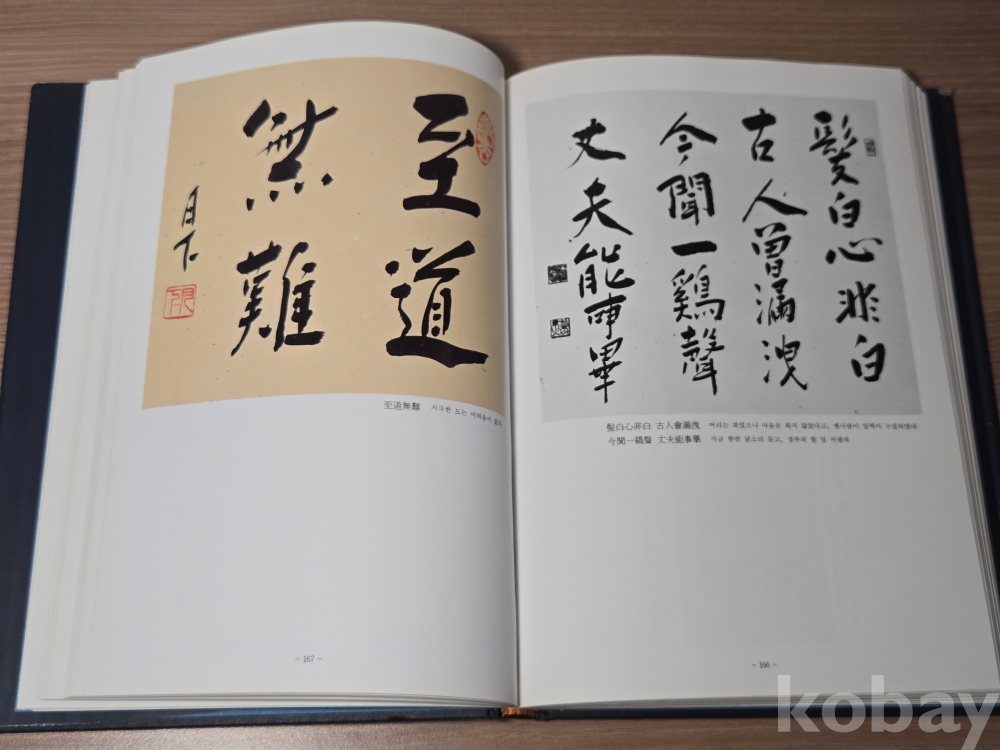 髮白心非白
古人曾漏洩
今聞一鷄聲
丈夫能事畢
髮白心非白 古人曾漏洩 머리는 희었으나 마음은 희지 않았다고, 옛사람이 일찍이 누설하였네
今聞一鷄聲 丈夫能事畢 지금 한번 닭소리 듣고, 장부의 할 일 마쳤네
- 166 -
至道
無難
月下
至道無難 지극한 도는 어려움이
- 167 -
kobay